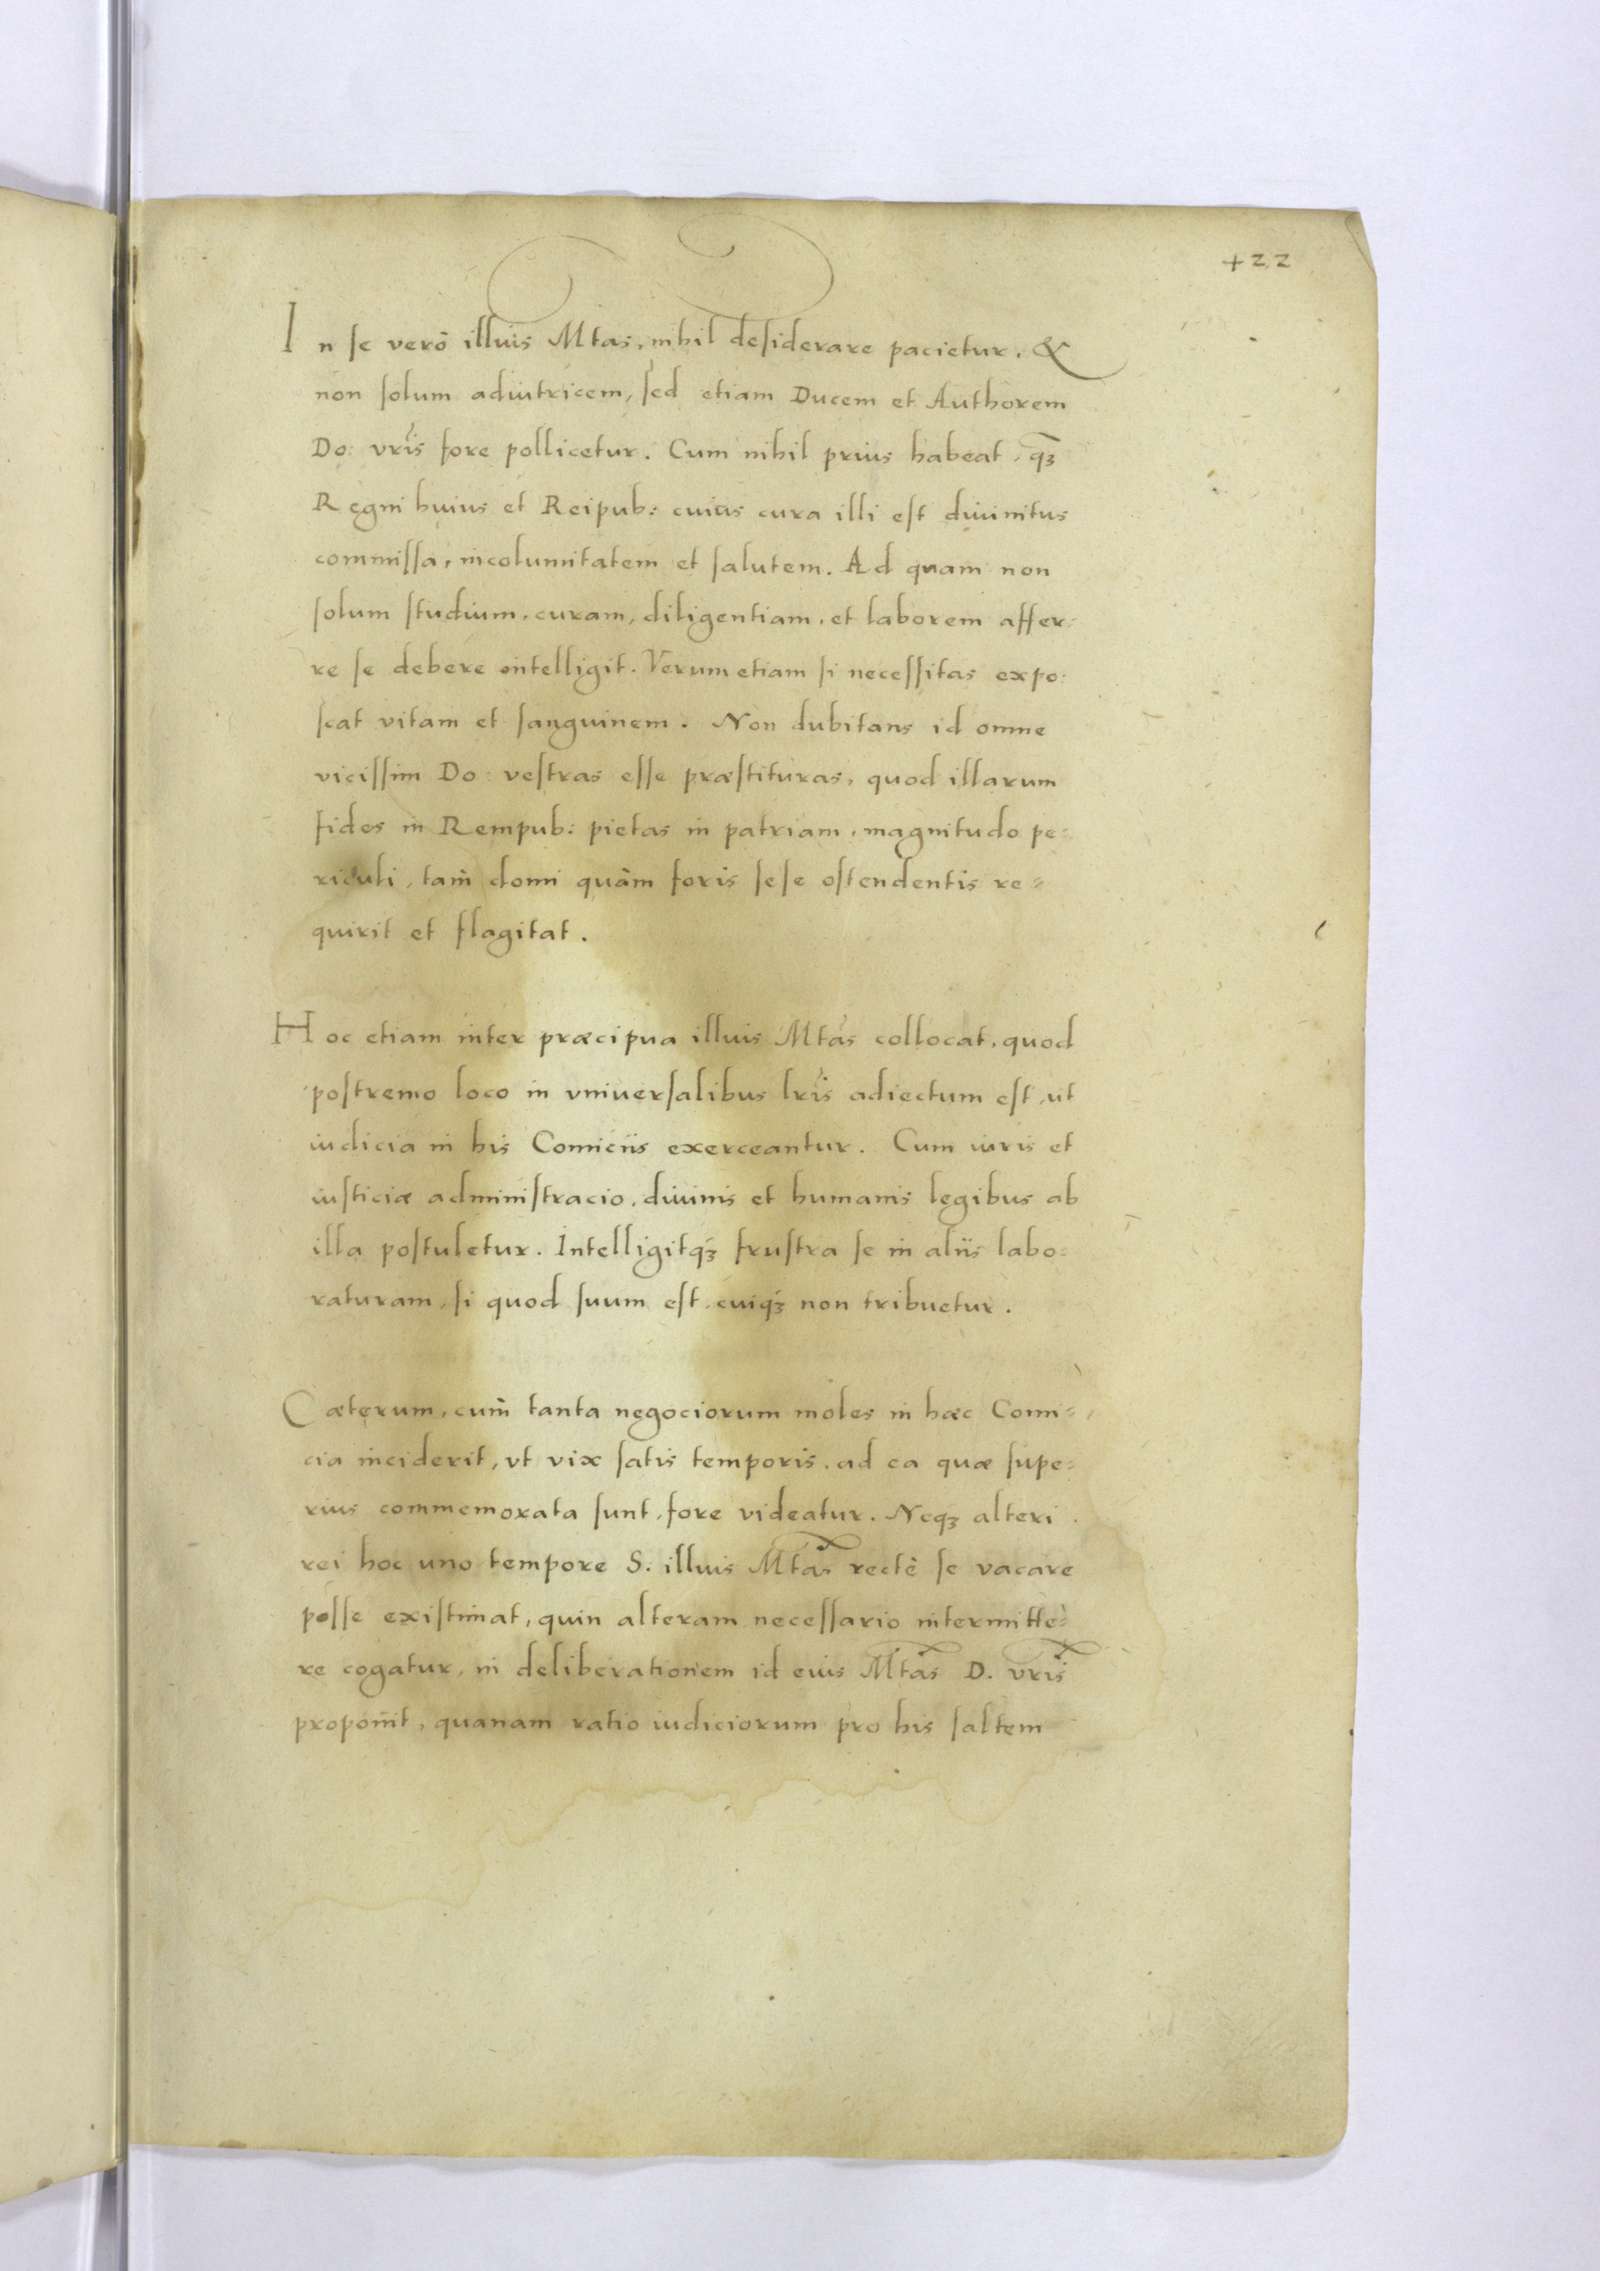 +22
In se verò illius Mtas, nihil desiderare pacietur, &
non solum adiutricem, sed etiam Ducem et Authorem
Do: vr̃is fore pollicetur. Cum nihil prius habeat, q̃ʒ
Regni huius et Reipub: cuius cura illi est divinitus
commissa, incolumitatem et salutem. Ad quam non
solum studium, curam, diligentiam, et laborem affer:
re se debere intelligit. Verum etiam si necessitas expo:
scat vitam et sanguinem. Non dubitans id omne
vicissim Do: vestras esse præstituras, quod illarum
fides in Rempub: pietas in patriam, magnitudo pe:
riculi, tam̀ domi quàm foris sese ostendentis re=
quirit et flagitat.
Hoc etiam inter præcipua illius Mtas collocat, quod
postremo loco in vniversalibus lr̃is adiectum est, ut
iudicia in his Comiciis exerceantur. Cum iuris et
iusticiæ administracio, divinis et humanis legibus ab
illa postuletur. Intelligitqʒ́ frustra se in aliis labo:
raturam, si quod suum est, cuiqʒ́ non tribuetur.
Cæterum, cum̀ tanta negociorum moles in hæc Comi=
cia inciderit, vt vix satis temporis, ad ea quæ supe=
rius commemorata sunt, fore videatur. Neqʒ alteri
rei hoc uno tempore S. illius Mtas rectè se vacare
posse existimat, quin alteram necessario intermitte=
re cogatur, in deliberationem id eius Mtas D. vr̃is
proponit, quanam ratio iudiciorum pro his saltem